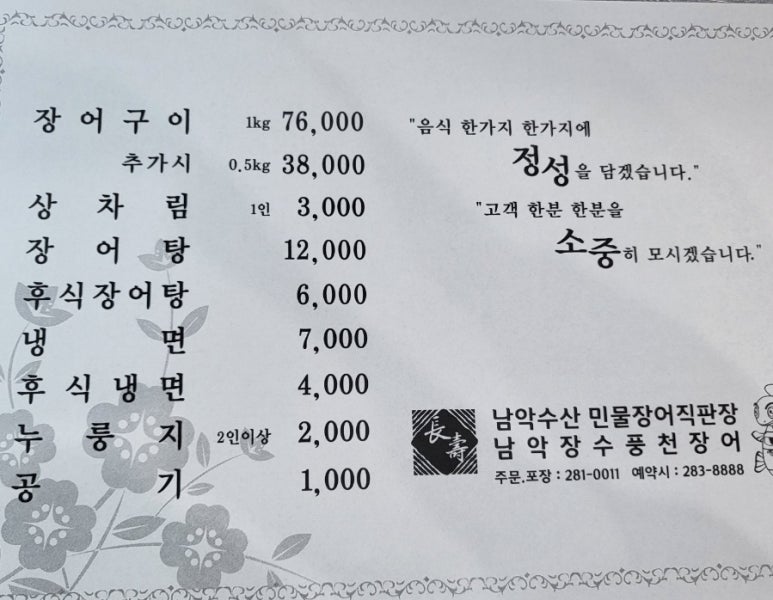 장어구이 1kg 76,000
추가시 0.5kg 38,000
상차림 1인 3,000
장어탕 12,000
후식장어탕 6,000
냉면 7,000
후식냉면 4,000
누룽지 2인이상 2,000
공기 1,000
"음식 한가지 한가지에
정성을 담겠습니다."
"고객 한분 한분을
소중히 모시겠습니다."
長壽
남악수산 민물장어직판장
남악장수풍천장어
주문.포장 : 281-0011 예약시 : 283-8888